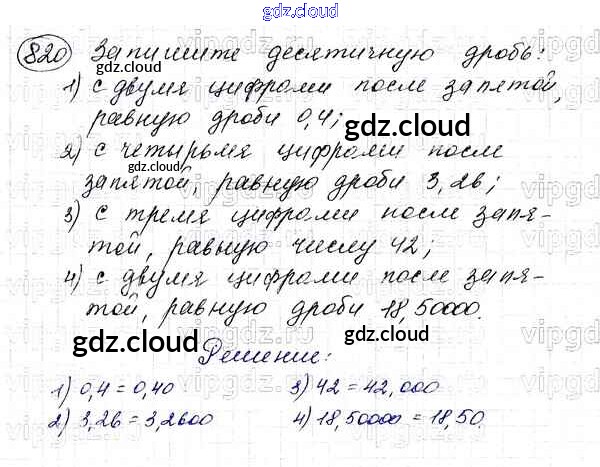 gdz.cloud
820 Запишите десятичную дробь:
1) с двумя цифрами после запятой,
равную дроби 0,4;
2) с четырьмя цифрами после
запятой, равную дроби 3,26;
3) с тремя цифрами после запя-
той, равную числу 42;
4) с двумя цифрами после запя-
той, равную дроби 18,50000.
Решение:
1) 0,4 = 0,40
2) 3,26 = 3,2600
3) 42 = 42,000
4) 18,50000 = 18,50.
gdz.cloud
gdz.cloud
gdz.cloud
gdz.cloud
gdz.cloud
gdz.cloud
gdz.cloud
gdz.cloud